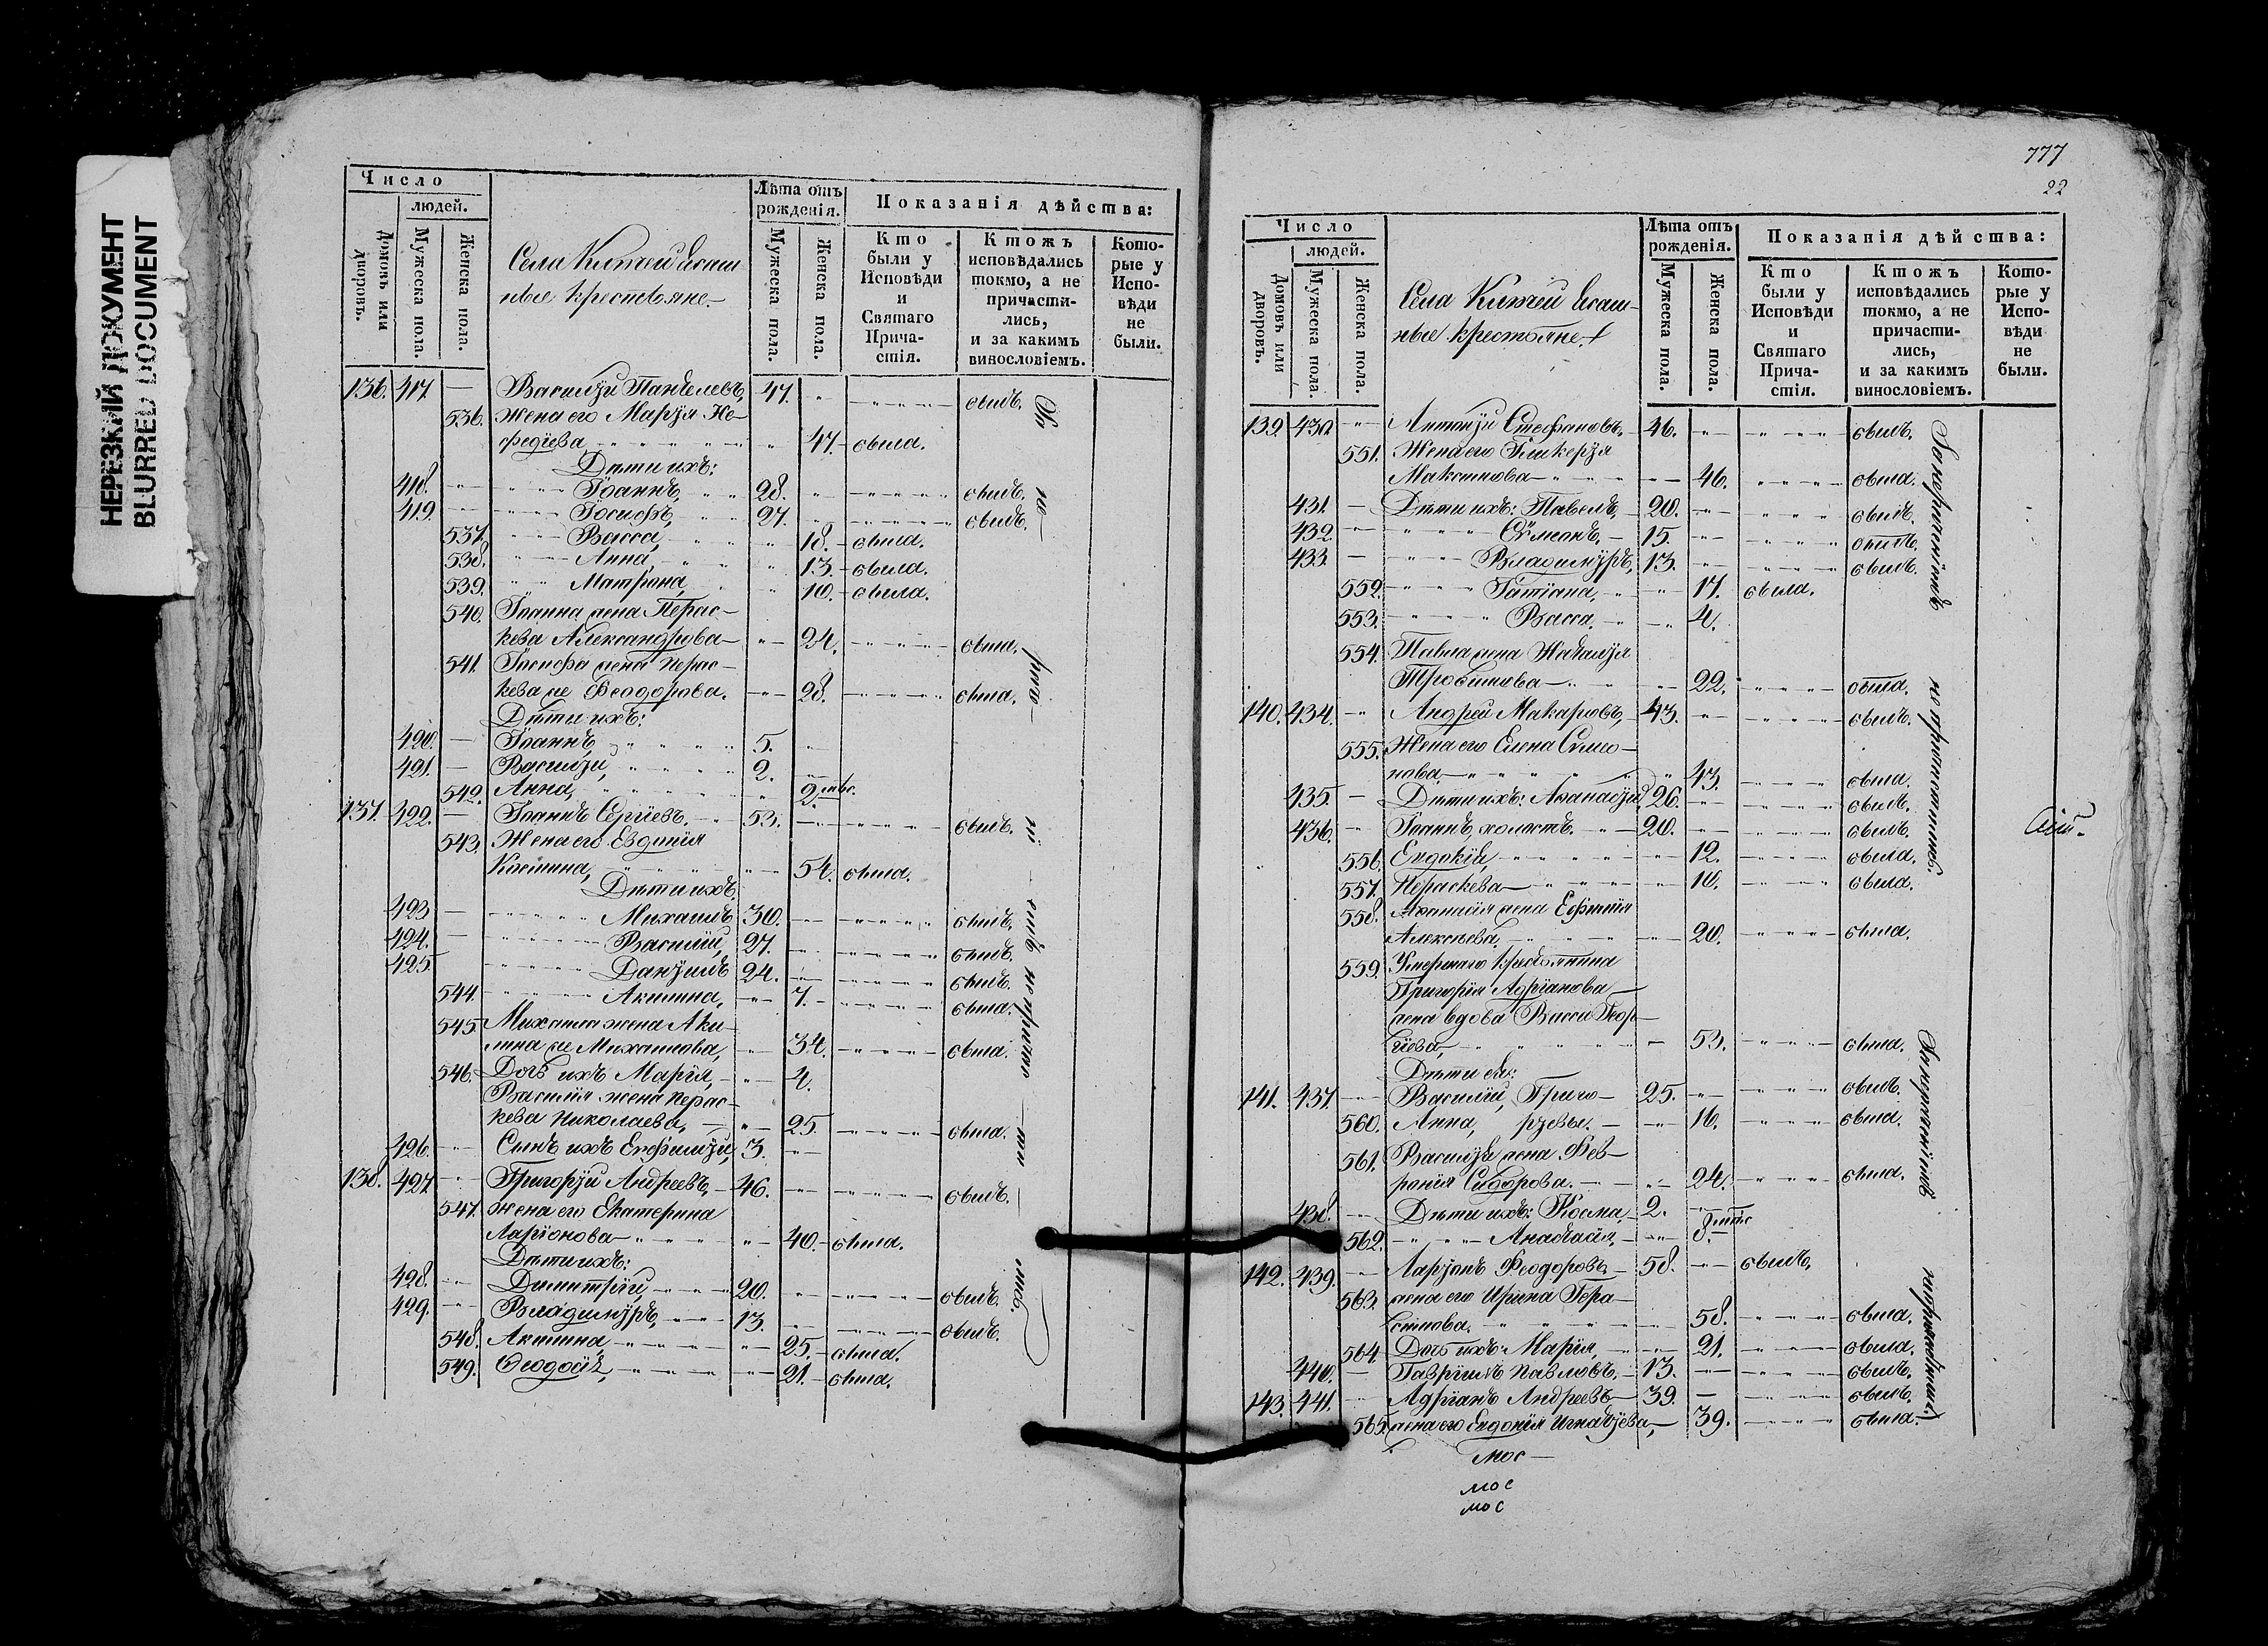 НЕРЕЗКИЙ ДОКУМЕНТ
BLURRED DOCUMENT
Число
людей.
Домовъ или дворовъ.
Мужеска пола.
Женска пола.
Лѣта отъ рожденія.
Мужеска пола.
Женска пола.
Показанія дѣйства:
Кто были у Исповѣди и Святаго Прича-стія.
Ктожъ исповѣдались токмо, а не причасти-лись, и за какимъ винословіемъ.
Кото-рые у Испо-вѣди не были.
Села
ные крестьяне
136. 417. — Василій 47. былъ.
536. Жена его Марѳа Не-
федіева 47. была.
Дѣти ихъ:
418. Іоаннъ, 28. былъ.
419. Іосифъ, 27. былъ.
537. Васса, 18. была.
538. Анна, 13. была.
539. Матрона, 10. была.
540. Іоанна жена Парас-
кева Александрова 24. была.
541. Іосифа жена Парас-
кева же Феодорова. 28. была.
Дѣти ихъ:
420. — Іоаннъ, 5.
421. — Василій, 2.
542. Анна, 2 мѣс.
137. 422. — Іоаннъ Сергіевъ, 53. былъ.
543. Жена его Евдокія
54. была.
Дѣти ихъ:
423 — Михаилъ 30. былъ.
424. — Василій, 27. былъ.
425. Даніилъ 24. былъ.
544. Акилина, 7. была.
545. Михаила жена Аки-
лина же Михаилова, 34. была.
546. Дочь ихъ Марія, 4.
Василія жена Парас-
кева Николаева, 25. была.
426. Сынъ ихъ 3.
138. 427. Григорій Андреевъ, 46. былъ.
547. Жена его Екатерина
Ларіонова 40. была.
Дѣти ихъ:
428. Димитрій, 20. былъ.
429. Владимиръ, 13. былъ.
548. Акилина, 25. была.
549. Ѳеодосія, 21. была.
777
22
Число
людей.
Домовъ или дворовъ.
Мужеска пола.
Женска пола.
Лѣта отъ рожденія.
Мужеска пола.
Женска пола.
Показанія дѣйства:
Кто были у Исповѣди и Святаго Прича-стія.
Ктожъ исповѣдались токмо, а не причасти-лись, и за какимъ винословіемъ.
Кото-рые у Испо-вѣди не были.
Села
ные крестьяне
139. 430. Антоній Стефановъ, 46. былъ.
551. Жена его Гликерія
Максимова 46. была.
431. — Дѣти ихъ: Павелъ, 20. былъ.
432. Сѵмеонъ, 15. былъ.
433. — Владимиръ, 13. былъ.
552. Татіана, 17. была.
553. Васса. 4.
554. Павла жена Наталія
Трофимова 22. была.
140. 434. Андрей Макаровъ, 43. былъ.
555. Жена его Елена Симео-
нова 43. была.
435. — Дѣти ихъ: Аѳанасій 26. былъ.
436. Іоаннъ холостъ. 20. былъ.
556. Евдокія, 12. была.
557. Параскева 10. была.
558. Аѳанасія жена Ефимія
Алексѣева, 20. была.
559. Умершаго крестьянина
Григорія Адріанова
жена вдова Васса Геор-
гіева, 53. была.
Дѣти ея:
141. 437. Василій, Григо- 25. былъ.
560. Анна, рьевы. 16. была.
561. Василія жена Фев-
ронія Сидорова. 24. была.
438. Дѣти ихъ: Косма, 2.
562. Анастасія, 8 мѣс
142. 439. Ларіонъ Феодоровъ 58. былъ.
563. жена его Ирина Гера-
симова 58. была.
564. Дочь ихъ Марія, 21. была.
440. — Гавріилъ Павловъ, 13. былъ.
143. 441. Адріанъ Андреевъ 39. былъ.
565. жена его Евдокія Игнатіева, 39. была.
мос
мос
мос